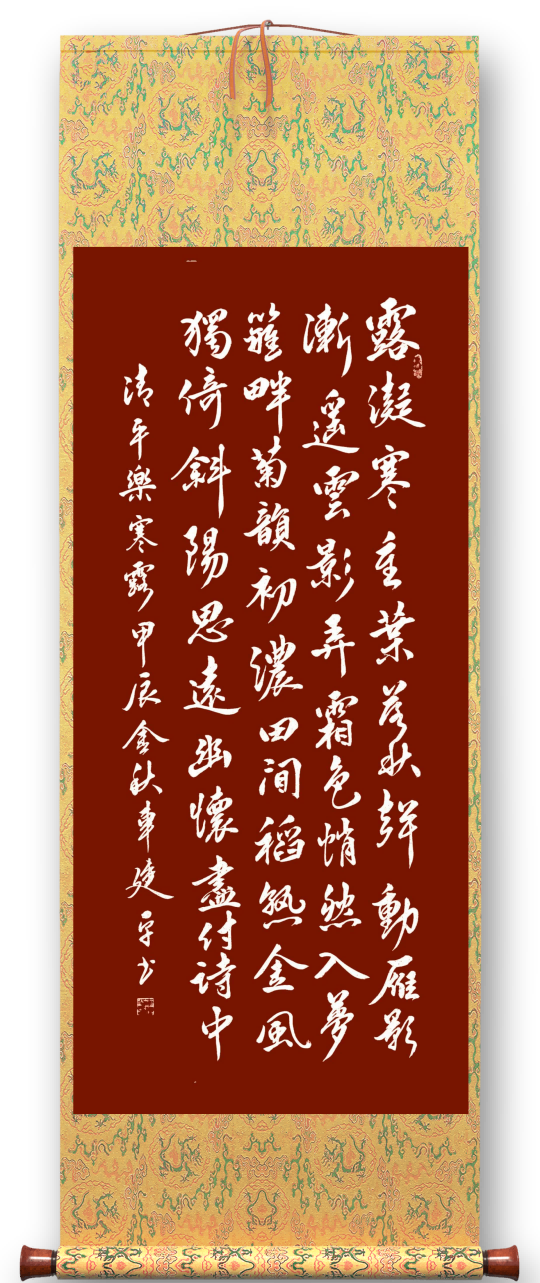 露凝寒重葉落秋聲動雁影
漸遥雲影弄霜色悄然入夢
籬畔菊韻初濃田間稻熟金風
獨倚斜陽思遠幽懷盡付詩中
清平樂寒露甲辰金秋車建平書